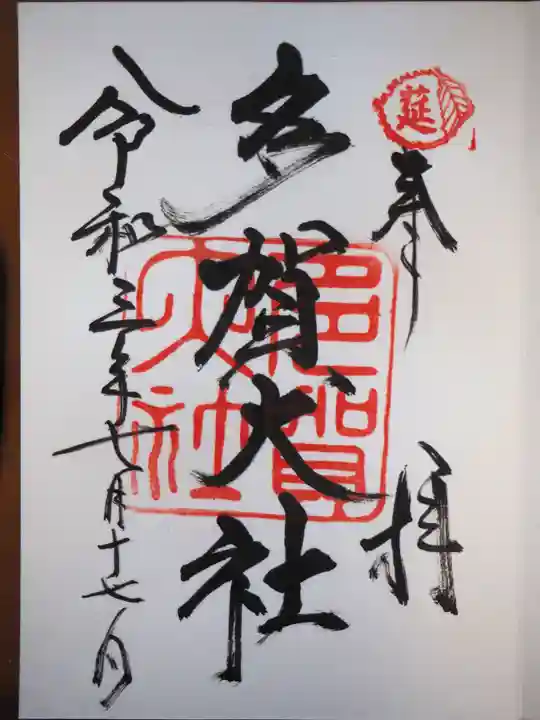 莚
奉拝
多賀大社
多賀大社
令和三年七月十七日